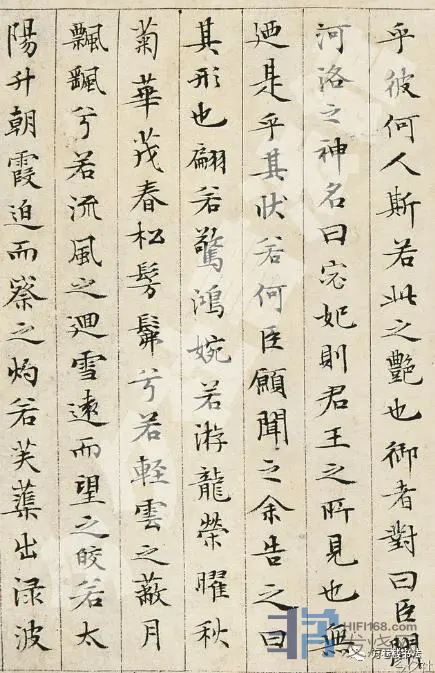 乎彼何人斯若此之艷也御者對曰臣聞
河洛之神名曰宓妃則君王之所見也無
迺是乎其狀若何臣願聞之余告之曰
其形也翩若驚鴻婉若游龍榮曜秋
菊華茂春松髣髴兮若輕雲之蔽月
飄飖兮若流風之迴雪遠而望之皎若太
陽升朝霞迫而察之灼若芙蕖出淥波
HIFI168.com